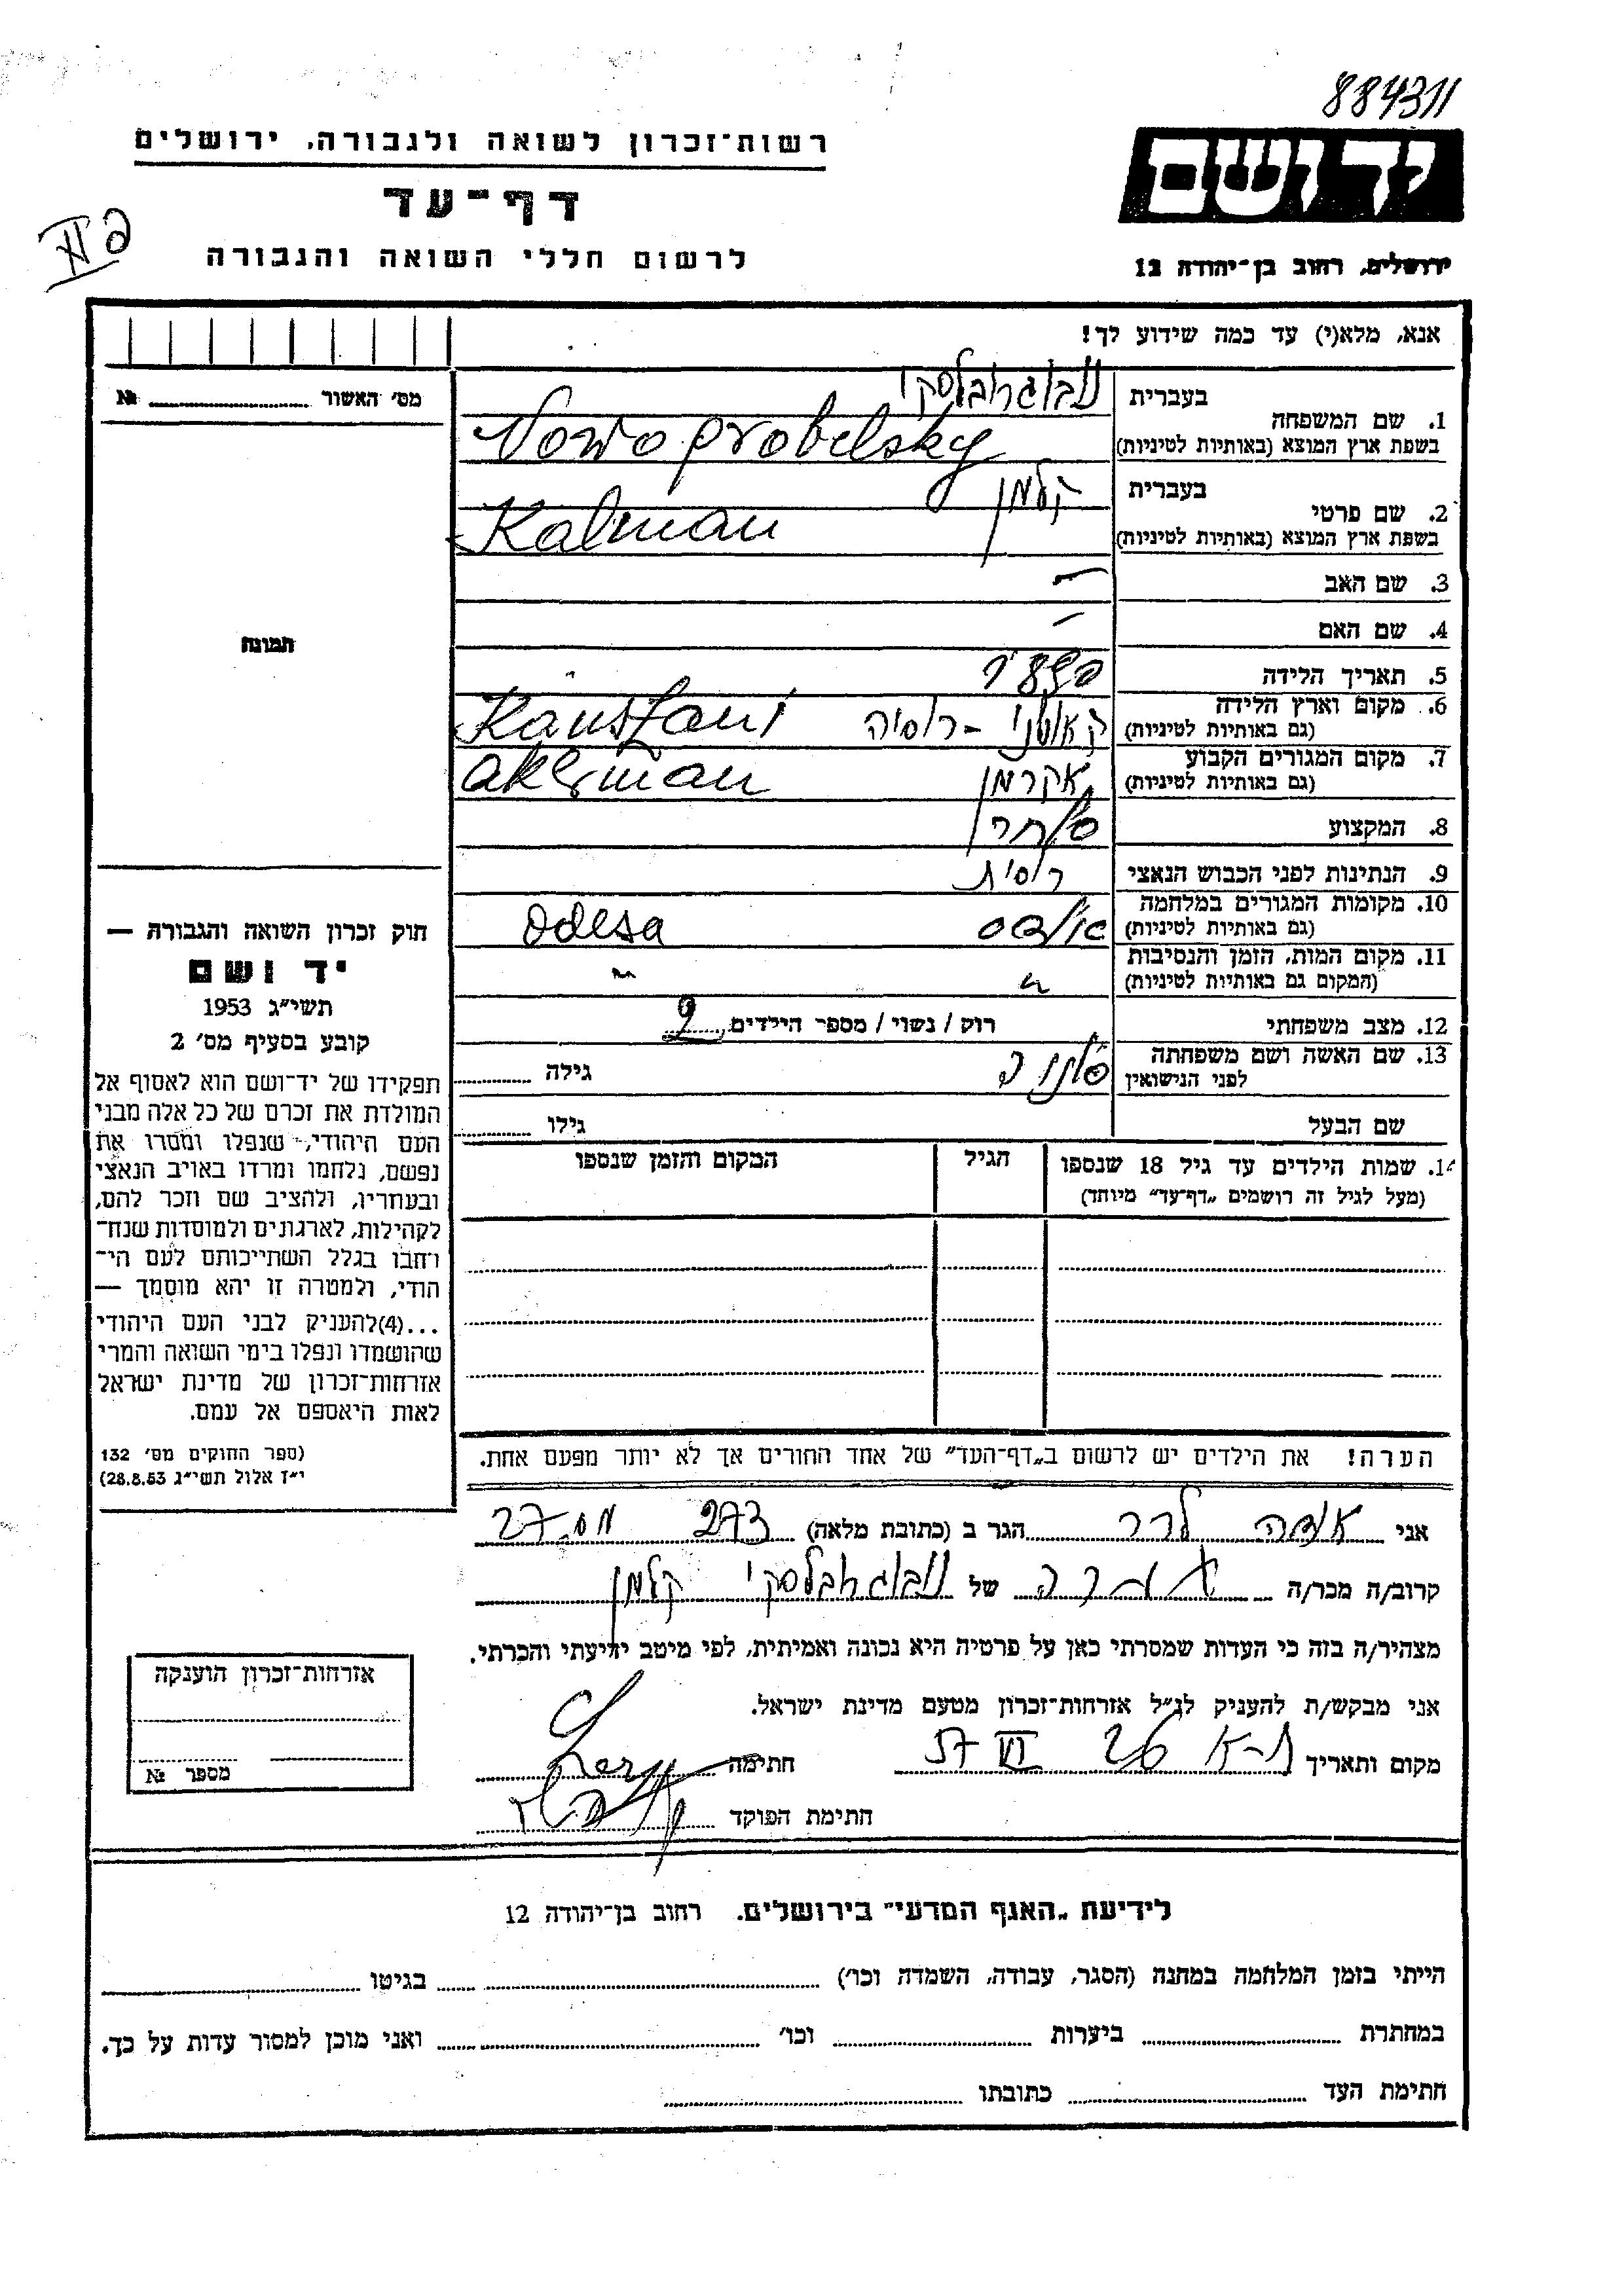 884311
רשות־זכרון לשואה ולגבורה, ירושלים
יד ושם
דף־עד
לרשום חללי השואה והגבורה
ירושלים, רחוב בן־יהודה 12
אנא, מלא(י) עד כמה שידוע לך!
מס׳ האשור № 
1. שם המשפחה
בעברית נובוגרובלסקי
בשפת ארץ המוצא (באותיות לטיניות) Nowogrobelsky
2. שם פרטי
בעברית קלמן
בשפת ארץ המוצא (באותיות לטיניות) Kalman
3. שם האב –
4. שם האם –
תמונה
5. תאריך הלידה
6. מקום וארץ הלידה
(גם באותיות לטיניות) רוסיה Kaustani
7. מקום המגורים הקבוע
(גם באותיות לטיניות) אקרמן Akerman
8. המקצוע סוחר
9. הנתינות לפני הכבוש הנאצי רוסית
10. מקומות המגורים במלחמה
(גם באותיות לטיניות) אודסה Odesa
11. מקום המות, הזמן והנסיבות
(המקום גם באותיות לטיניות) " "
12. מצב משפחתי רוק / נשוי / מספר הילדים 2
13. שם האשה ושם משפחתה
לפני הנישואין גילה
שם הבעל גילו
14. שמות הילדים עד גיל 18 שנספו
(מעל לגיל זה רושמים „דף־עד״ מיוחד)
הגיל
המקום והזמן שנספו
חוק זכרון השואה והגבורה —
יד ושם
תשי״ג 1953
קובע בסעיף מס׳ 2
תפקידו של יד־ושם הוא לאסוף אל
המולדת את זכרם של כל אלה מבני
העם היהודי, שנפלו ומסרו את
נפשם, נלחמו ומרדו באויב הנאצי
ובעוזריו, ולהציב שם וזכר להם,
לקהילות, לארגונים ולמוסדות שנח־
רחבו בגלל השתייכותם לעם הי־
הודי, ולמטרה זו יהא מוסמך —
...(4)להעניק לבני העם היהודי
שהושמדו ונפלו בימי השואה והמרי
אזרחות־זכרון של מדינת ישראל
לאות היאספם אל עמם.
(ספר החוקים מס׳ 132
י״ז אלול תשי״ג 28.8.53)
הערה! את הילדים יש לרשום ב„דף־העד״ של אחד ההורים אך לא יותר מפעם אחת.
אני לרר הגר ב (כתובת מלאה) 273 מס. 27
קרוב/ה מכר/ה של נובוגרובלסקי קלמן
מצהיר/ה בזה כי העדות שמסרתי כאן על פרטיה היא נכונה ואמיתית, לפי מיטב ידיעתי והכרתי.
אני מבקש/ת להעניק לנ״ל אזרחות־זכרון מטעם מדינת ישראל.
מקום ותאריך ת-א 26 VI 57 חתימה
חתימת הפוקד
אזרחות־זכרון הוענקה
מספר №
לידיעת „האגף המדעי״ בירושלים. רחוב בן־יהודה 12
הייתי בזמן המלחמה במחנה (הסגר, עבודה, השמדה וכו׳) בגיטו
במחתרת ביערות וכו׳ ואני מוכן למסור עדות על כך.
חתימת העד כתובתו